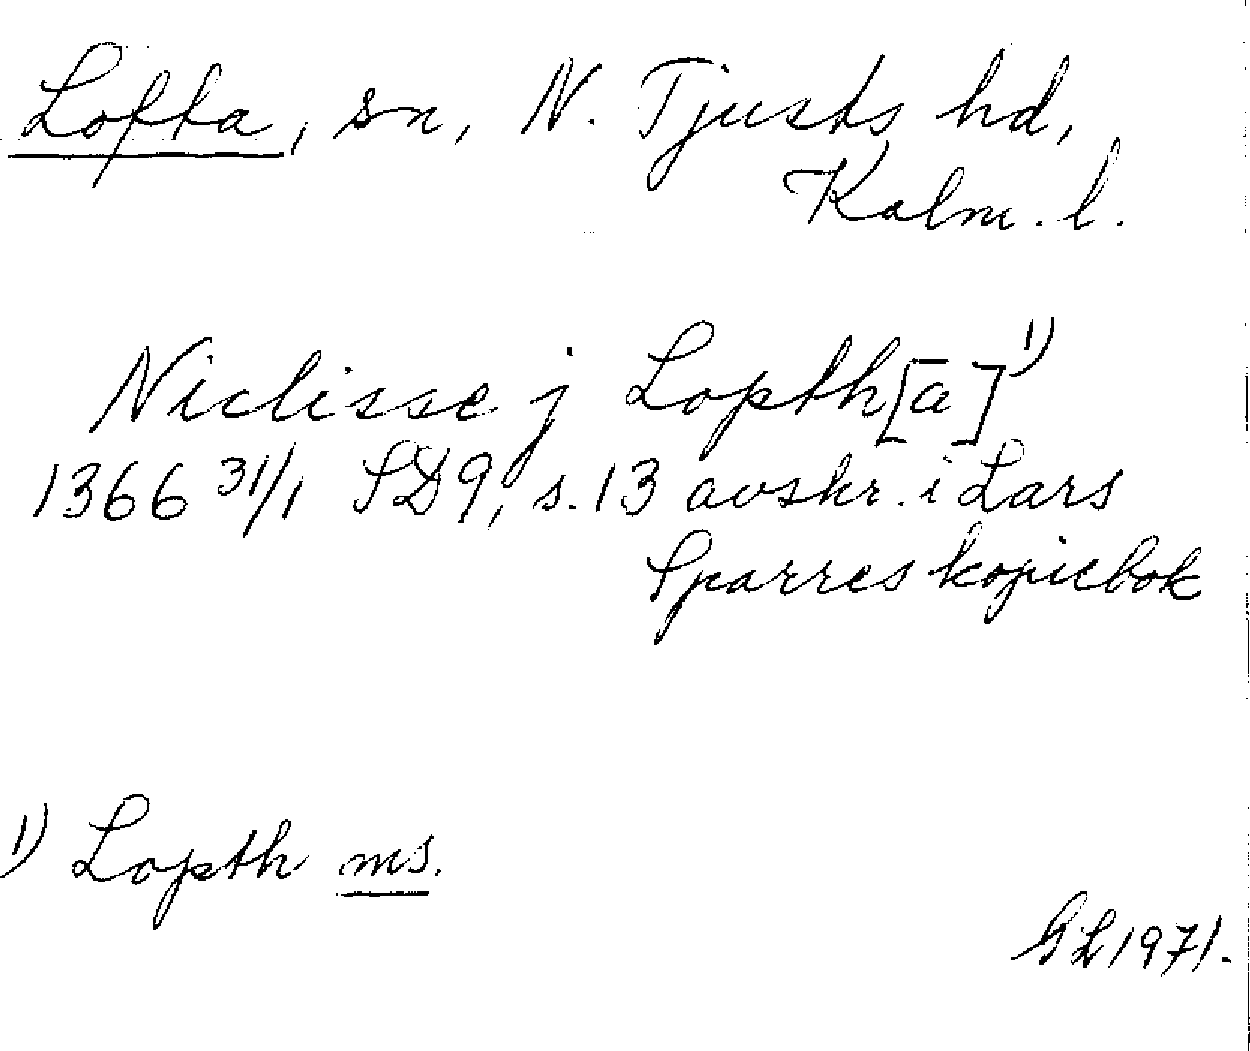 Lofta, sn, N. Tjusts hd,
Kalm. l.
Niclisse j Lopth[a] 1)
1366 31/1 SD 9, s. 13 avskr. i Lars
Sparres kopiebok
1) Lopth ms.
GL 1971.